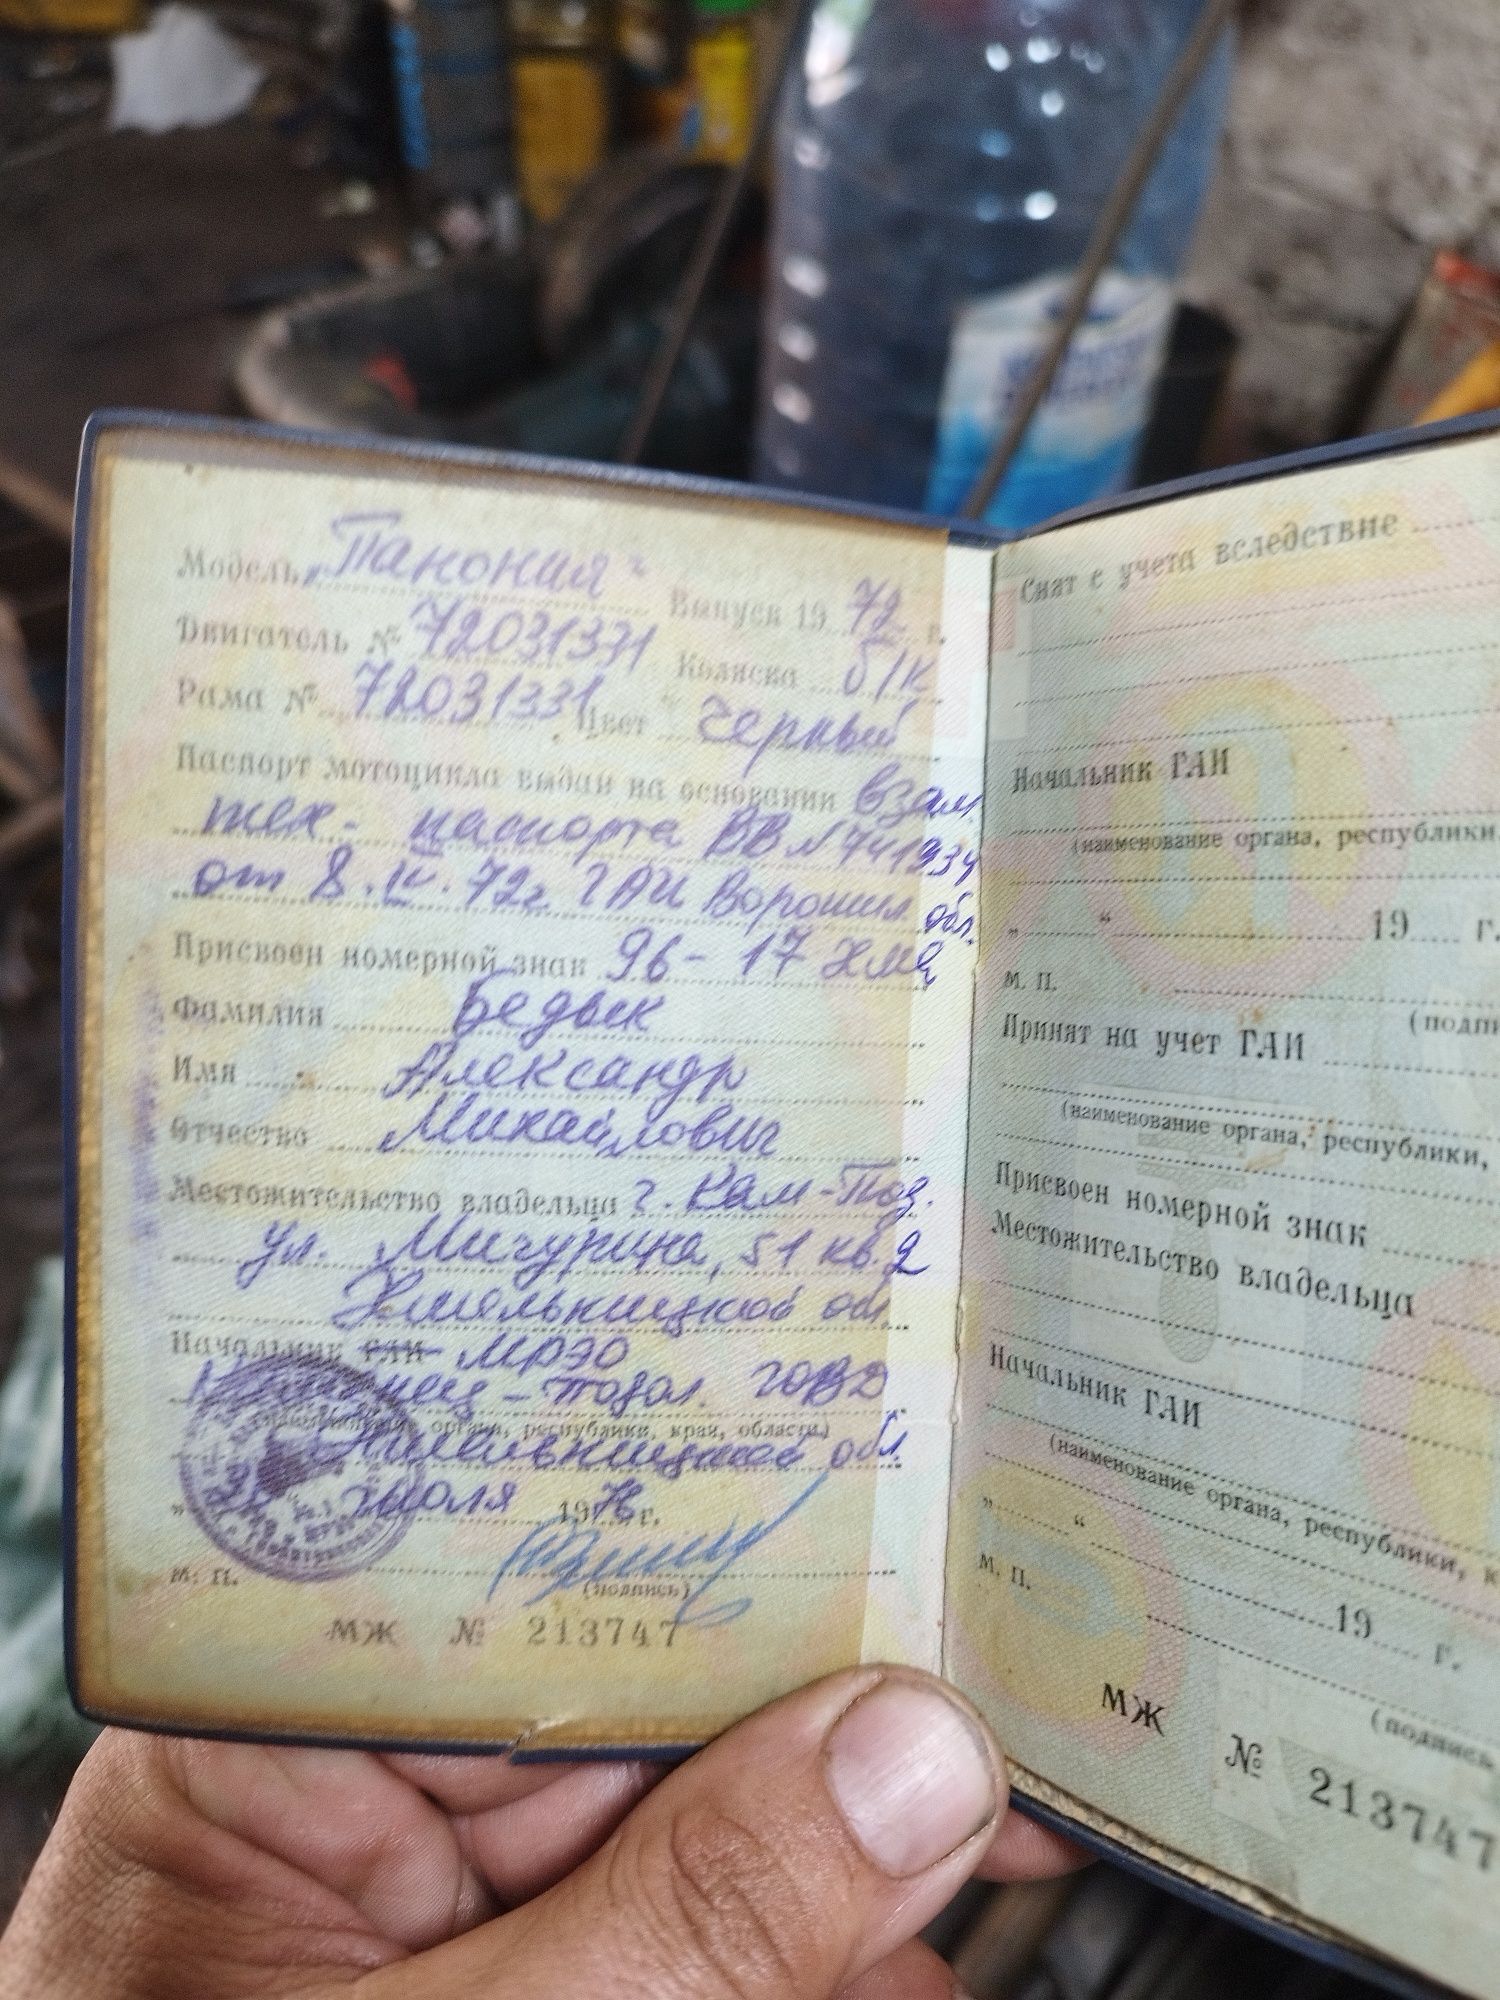 Модель „Панония" Выпуск 19 72 г.
Двигатель № 72031331 Коляска б/к
Рама № 72031331 Цвет Черный
Паспорт мотоцикла выдан на основании взам.
тех. паспорта ВВ № 741934
от 8.IV.72г. ГАИ Ворошил. обл.
Присвоен номерной знак 96-17 хме
Фамилия Бедык
Имя Александр
Отчество Михайлович
Местожительство владельца г. Кам-Под.
ул. Мичурина, 51 кв. 2
Хмельницкой обл.
Начальник ГАИ МРЭО
Каменец-Подол. ГОВД
(наименование органа, республики, края, области)
Хмельницкой обл.
" июля 1978 г.
м. п. (подпись)
МЖ № 213747
Снят с учета вследствие
Начальник ГАИ
(наименование органа, республики,
„ “ 19 г.
м. п.
(подпи
Принят на учет ГАИ
(наименование органа, республики,
Присвоен номерной знак
Местожительство владельца
Начальник ГАИ
(наименование органа, республики, к
„ “ 19 г.
м. п.
(подпись
МЖ № 213747